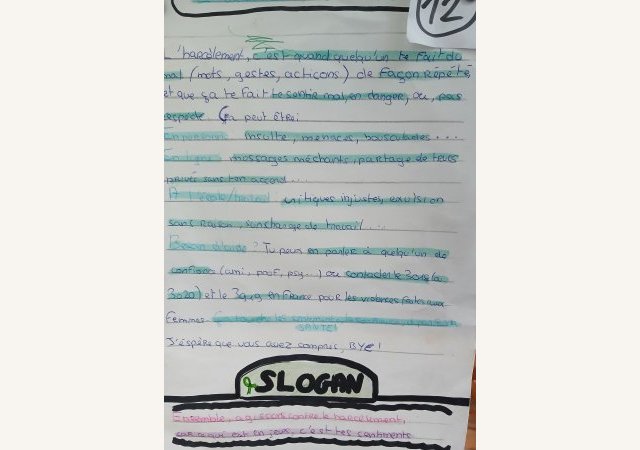 12
L'harcèlement, c'est quand quelqu'un te fait du
mal (mots, gestes, acticons) de façon répété
et que ça te fait te sentir mal, en danger, ou, pas
respecté. Ça peut être:
En personne insulte, menaces, bousculades...
En ligne messages méchants, partage de trucs
privée sans ton accord...
À l'école/travail critiques injustes, exculsion
sans raison, surcharge de travail...
Besoin d'aide? Tu peux en parler à quelqu'un de
confiance (ami, prof, psy...) ou contacter le 3018 (ou
3020) et le 3919 en France pour les violences faites aux
femmes
SANTE!
J'éspère que vous avez compris, BYE!
SLOGAN
Ensemble, agissons contre le harcèlement,
car ce qui est en jeux, c'est tes sentiments